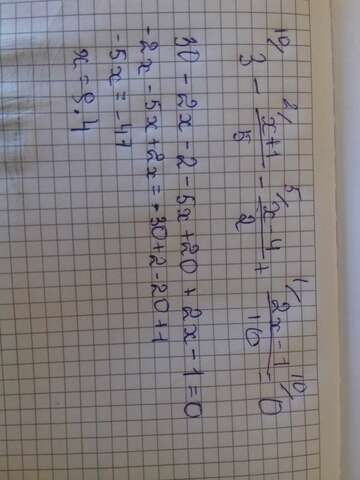 10/ 2/ 5/ 1/ 10/
3 - (x+1)/5 - (x-4)/2 + (2x-1)/10 = 0
30 - 2x - 2 - 5x + 20 + 2x - 1 = 0
-2x - 5x + 2x = -30 + 2 - 20 + 1
-5x = -47
x = 9.4